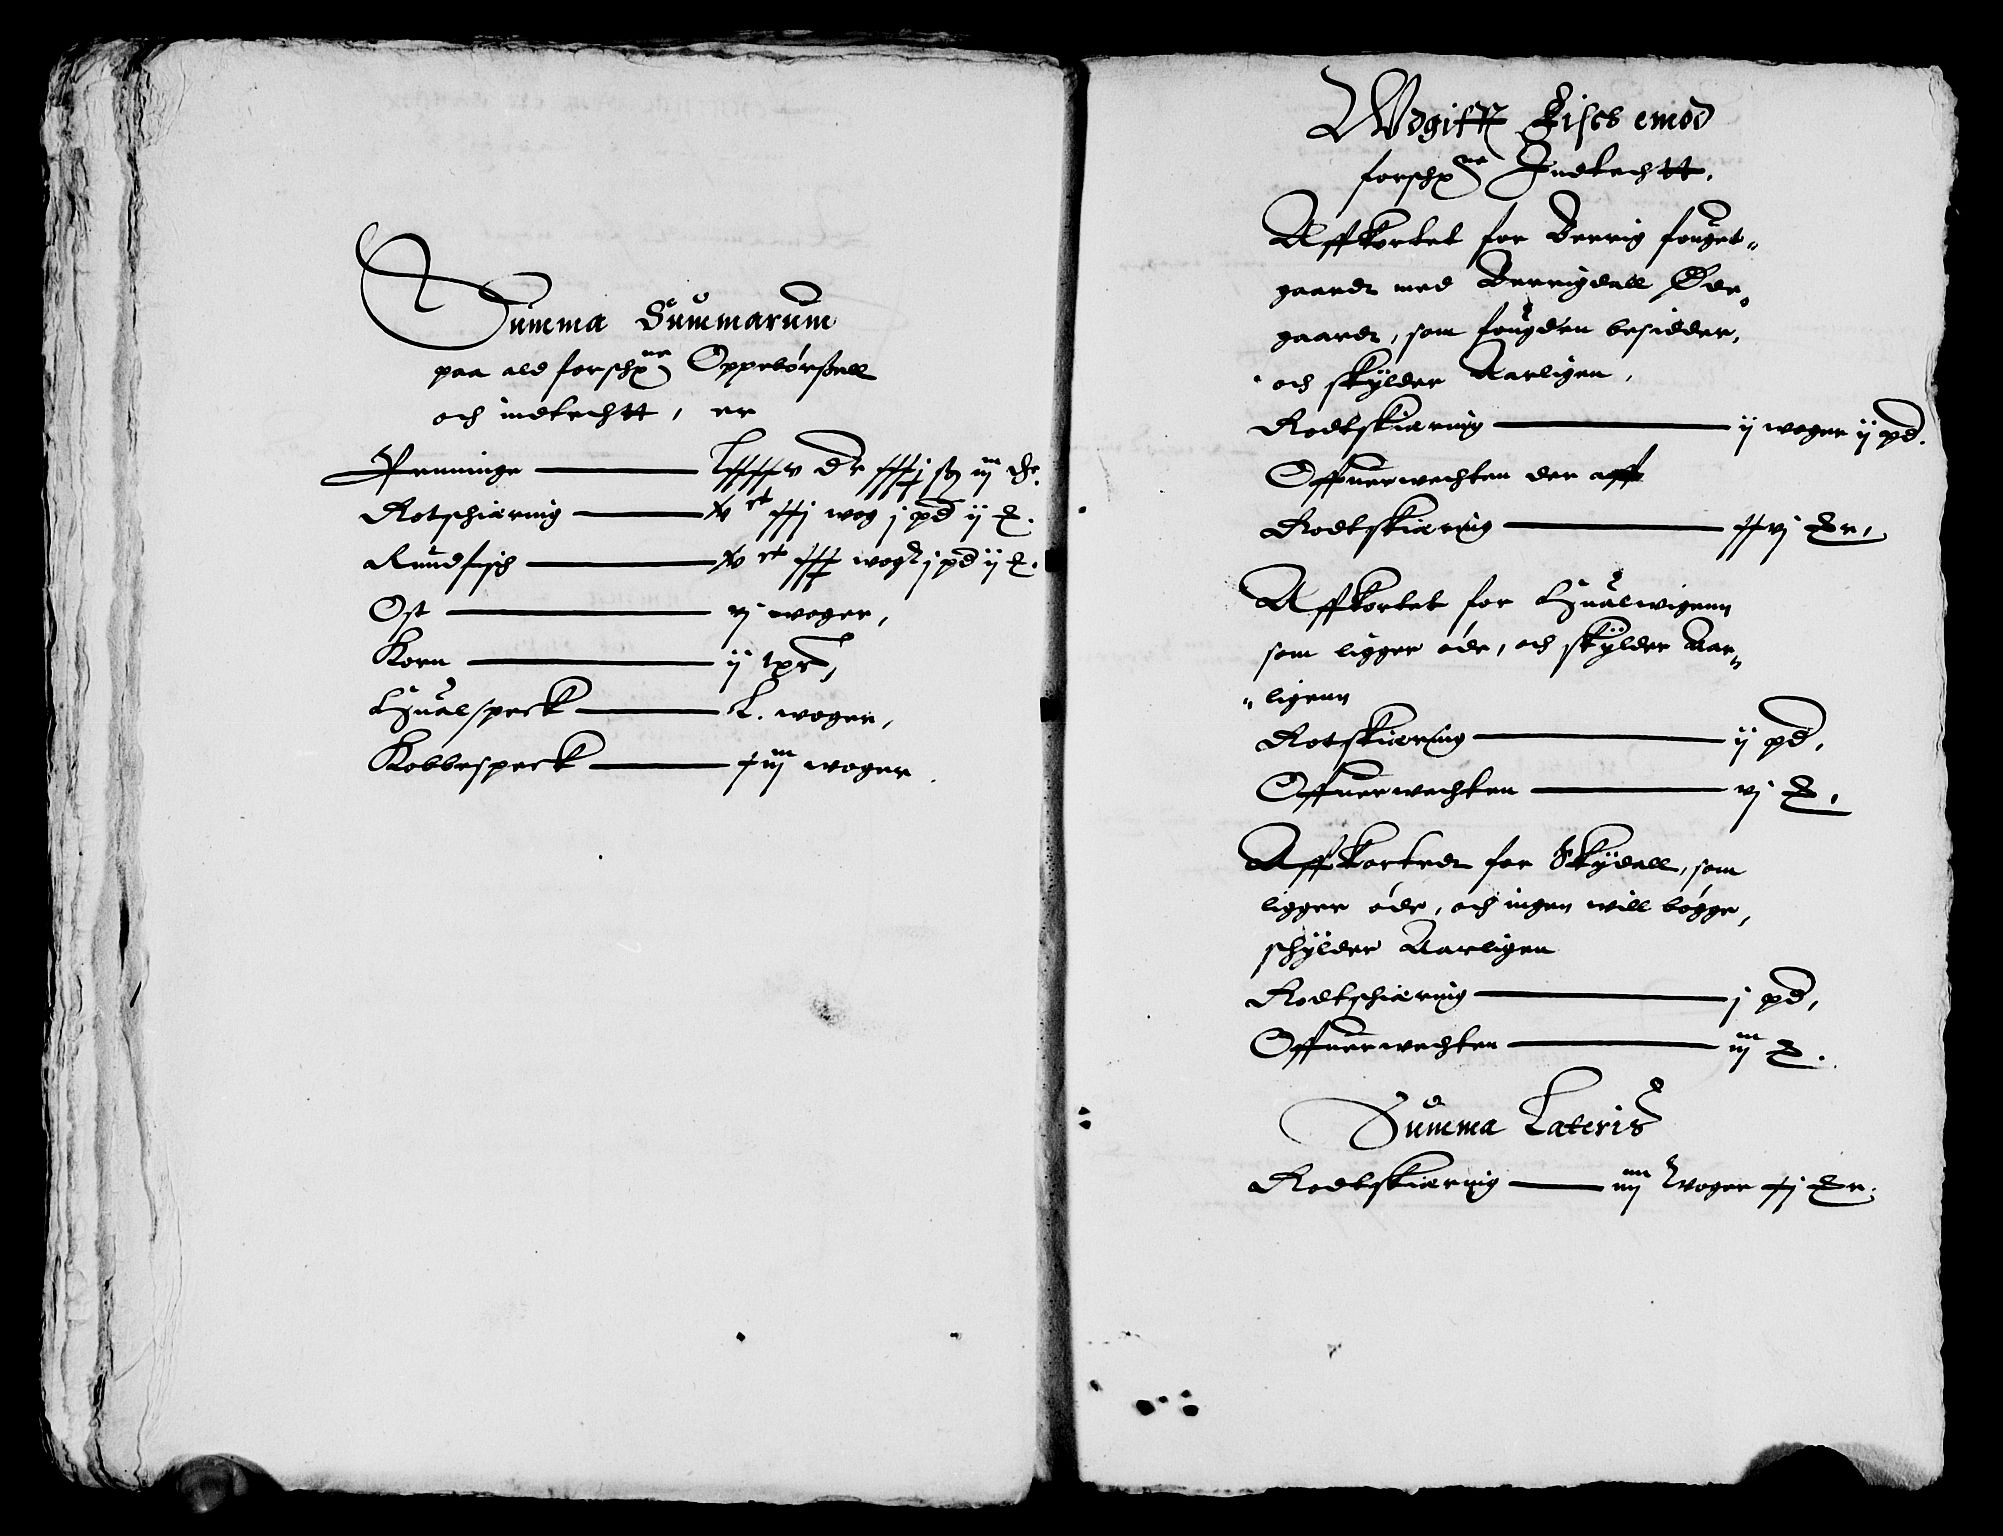 Summa Summarum
paa ald forschne Oppebørßell
och indtechtt, er
Penninge — lxxxxv dr xxxj sß iij
Rotschiering — xv ct xxj wog j pd ij
Rundfisch — xv ct xxx wogr j pd ij
Ost — vj woger,
Korn — ij tpr,
Hualspeck — L. woger,
Kobbespeck — xiij woger
Wdgifft Fisch emod
forschne Indtechtt,
Affkortet for fouget„
gaardt med Øde„
gaardt, som fougden besidder,
och skylder Aarligen,
Rodtskiæring — ij woger ij pd.
Offuerwechten der aff
Rodtskiæring — xxvj
Affkortet for Hualwigenn
som ligger øde, och skylder Aar„
„ligenn
Rotskiæring — ij pd,
Offuerwechten — vj
Affkortedt for Skydall, som
ligger øde, och ingen will bøgge,
schylder Aarligen
Rodtschiæring — j pd,
Offuerwechten — iij
Summa Lateris
Rodtskiæring — iiij Woger xj